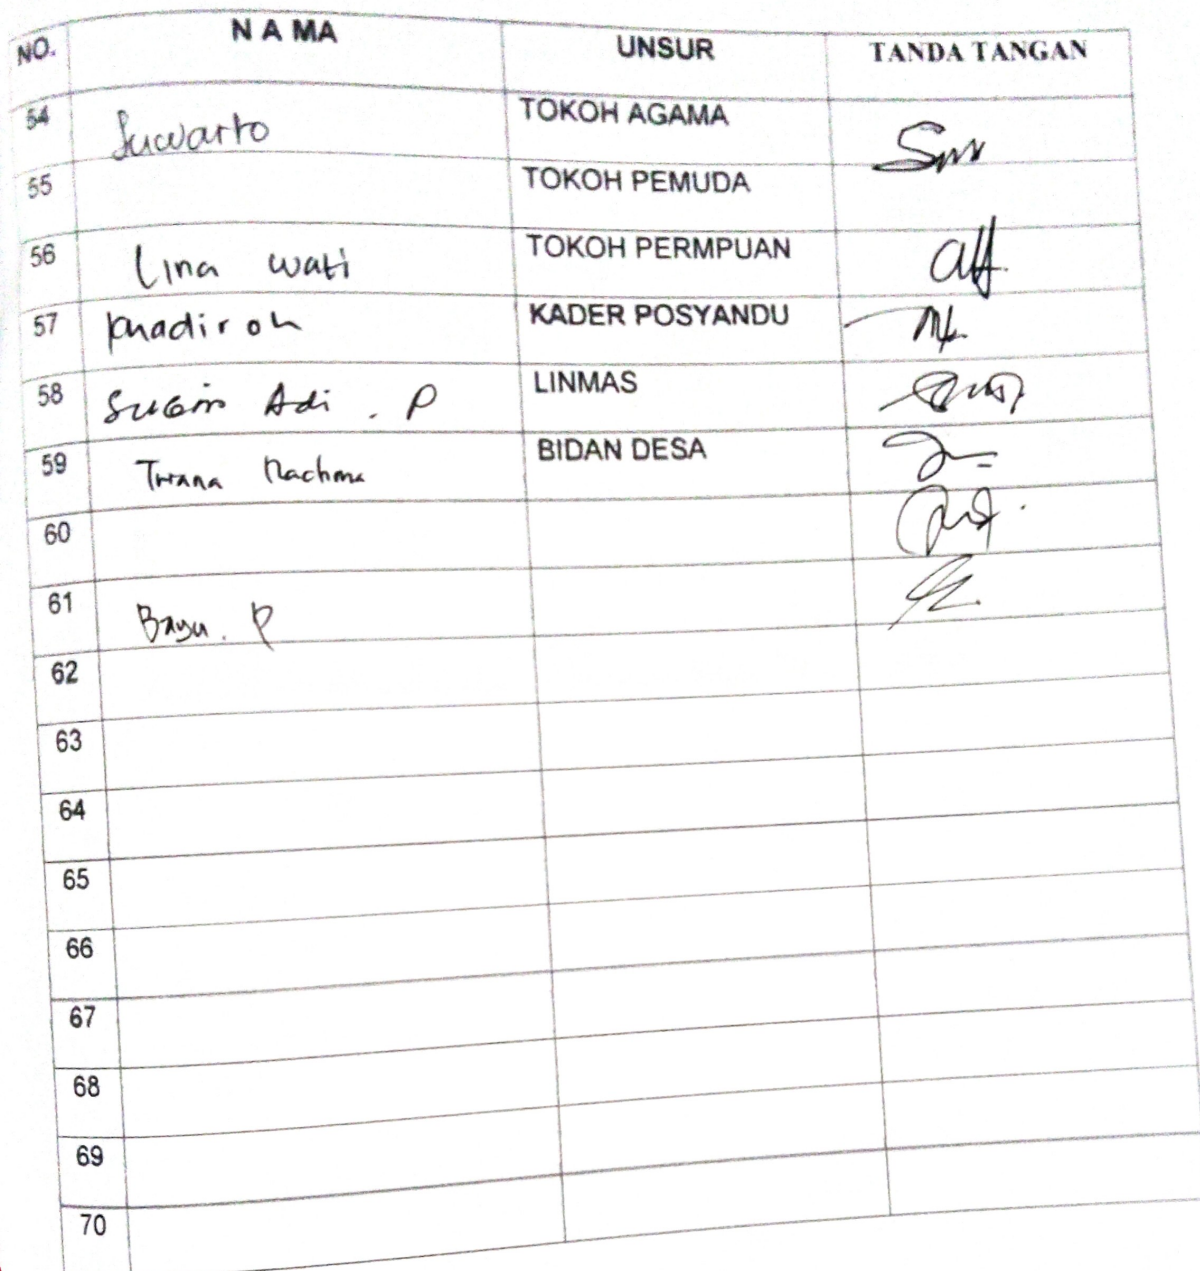 NO. N A M A UNSUR TANDA TANGAN
54 Suwarto TOKOH AGAMA
55 TOKOH PEMUDA
56 Lina Wati TOKOH PERMPUAN
57 Khadiroh KADER POSYANDU
58 Adi . P LINMAS
59 Rachma BIDAN DESA
60
61 Bayu . P
62
63
64
65
66
67
68
69
70